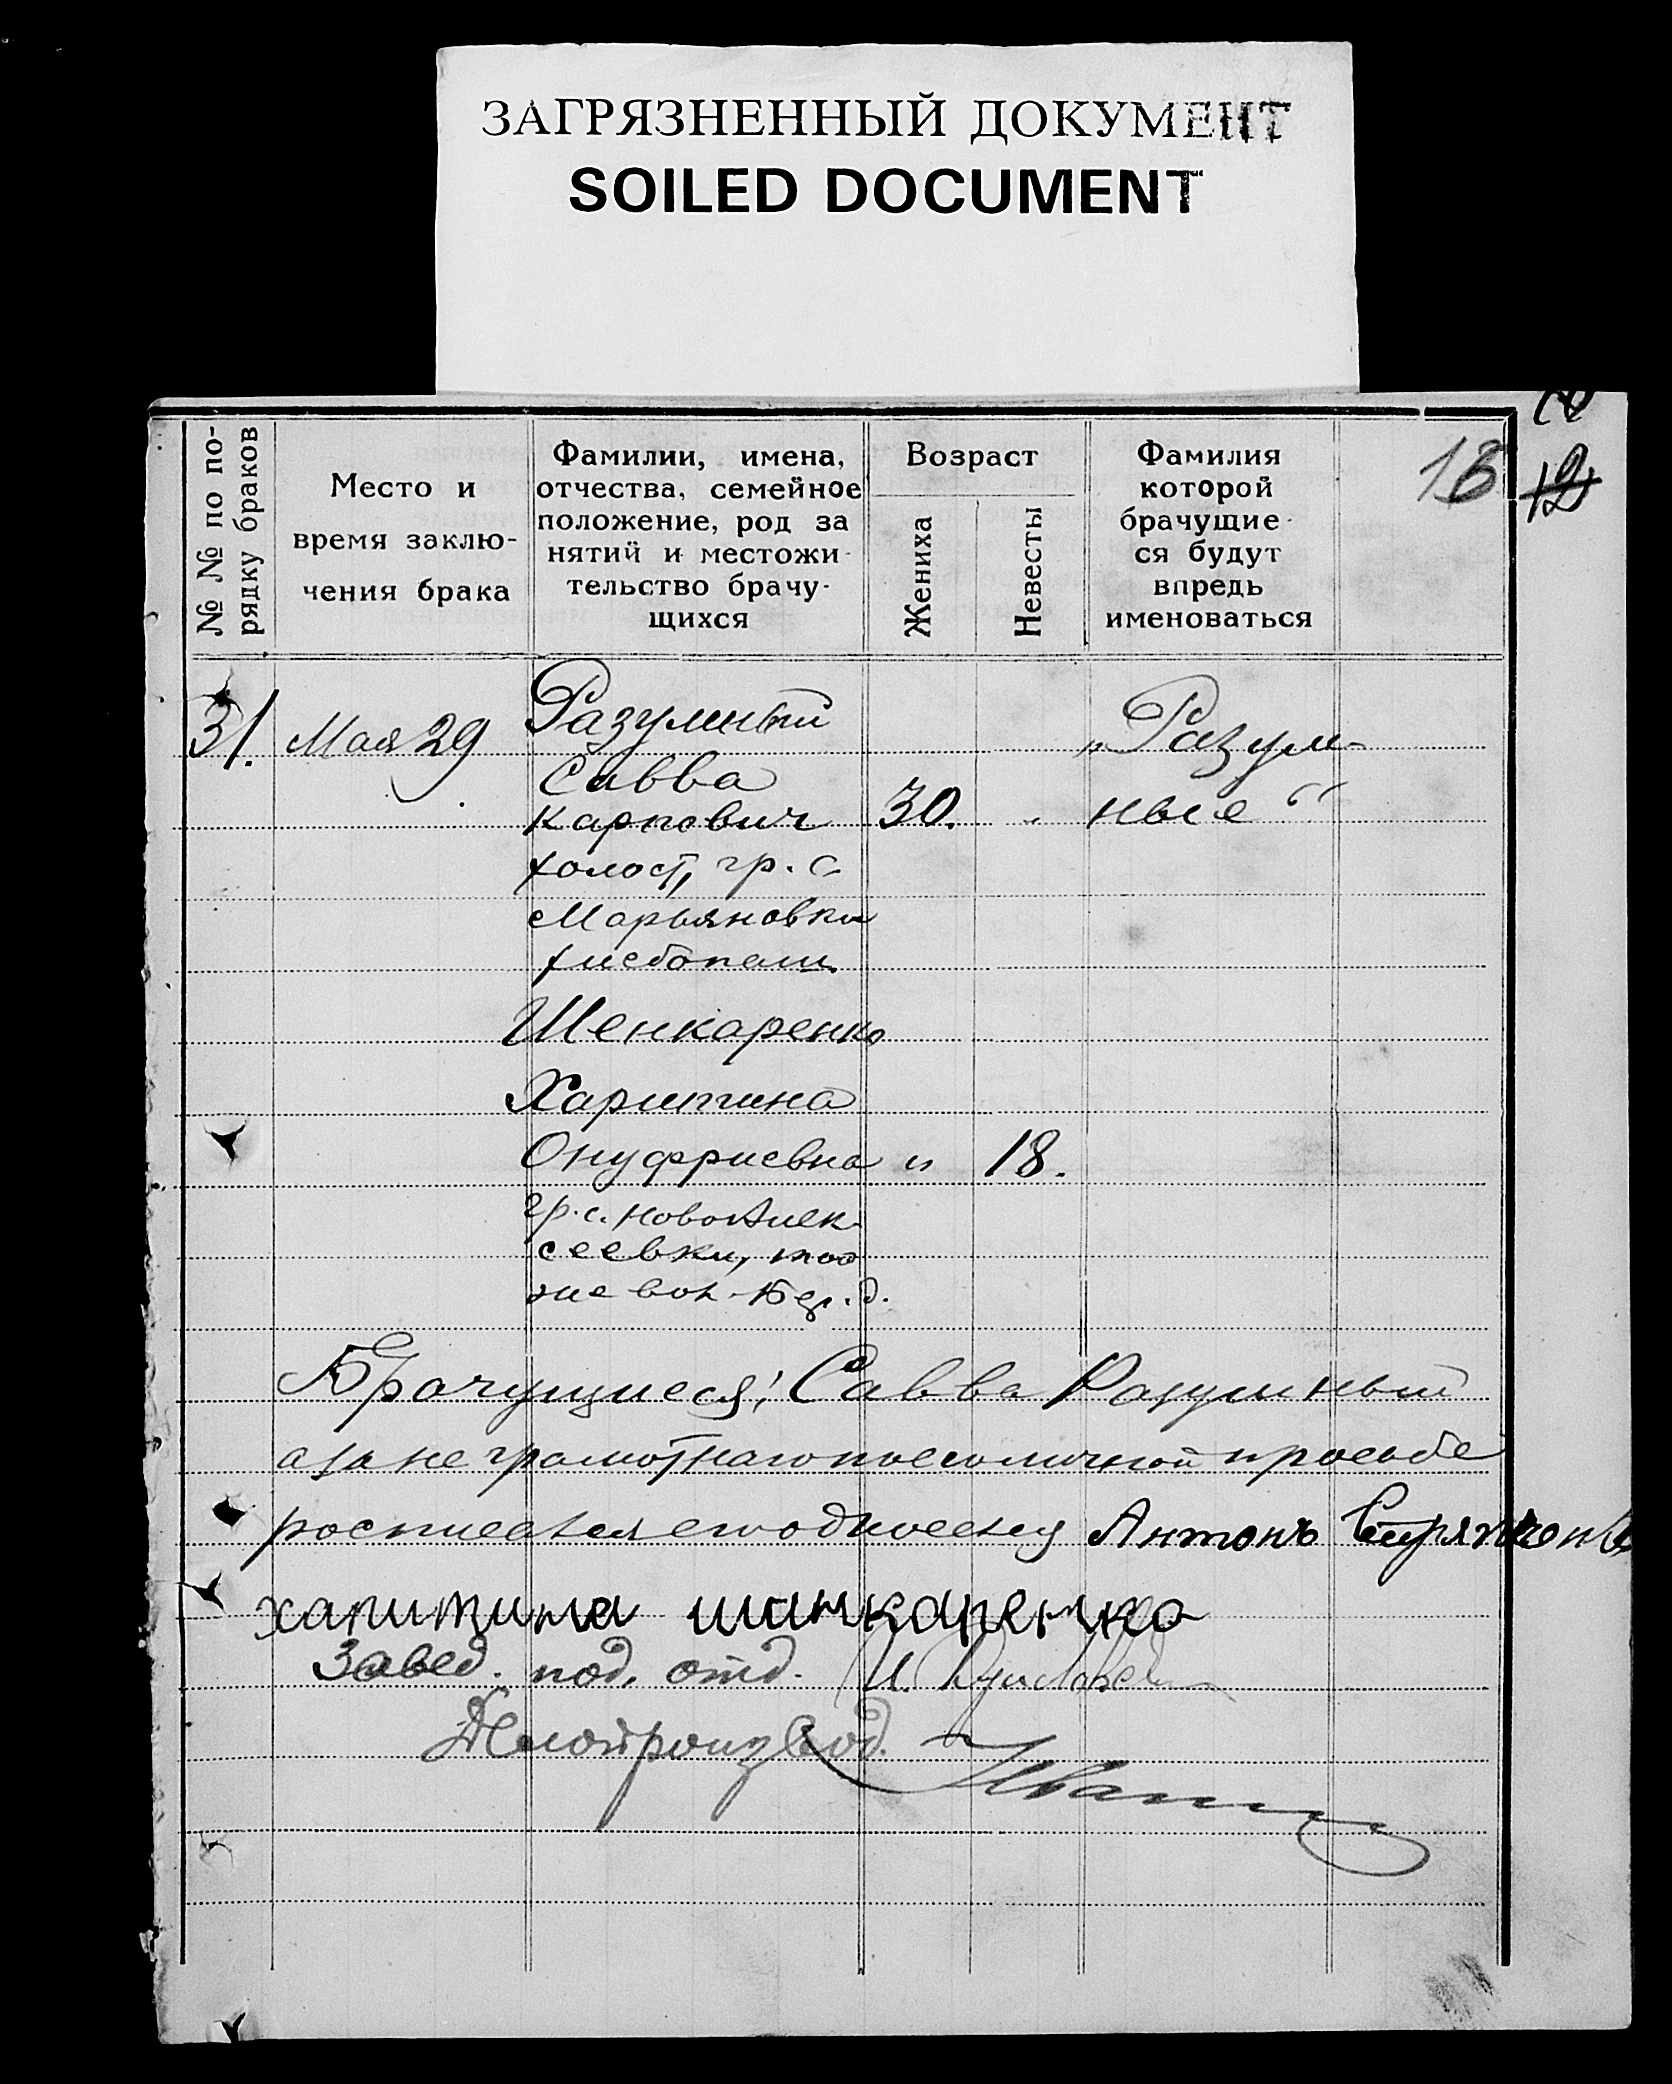 ЗАГРЯЗНЕННЫЙ ДОКУМЕНТ
SOILED DOCUMENT
№ № по по-
рядку браков
Место и
время заклю-
чения брака
Фамилии, имена,
отчества, семейное
положение, род за
нятий и местожи
тельство брачу-
щихся
Возраст
Жениха
Невесты
Фамилия
которой
брачущие-
ся будут
впредь
именоваться
12
31. Мая 29
Разумный
Савва
Карпович
холост, гр. с.
Марьяновки
хлебопаш.
30.
„Разум-
ные“
Шенкаренко
Харитина
Онуфриевна и 18.
гр. с. НовоАлек-
сеевки, той
же вол.
Брачущиеся: Савва Разумный
а за неграмотнаго по его личной просьбе
Антонъ
харитина шинкаренко
Завед. под. отд. И.
Делопроизвод.